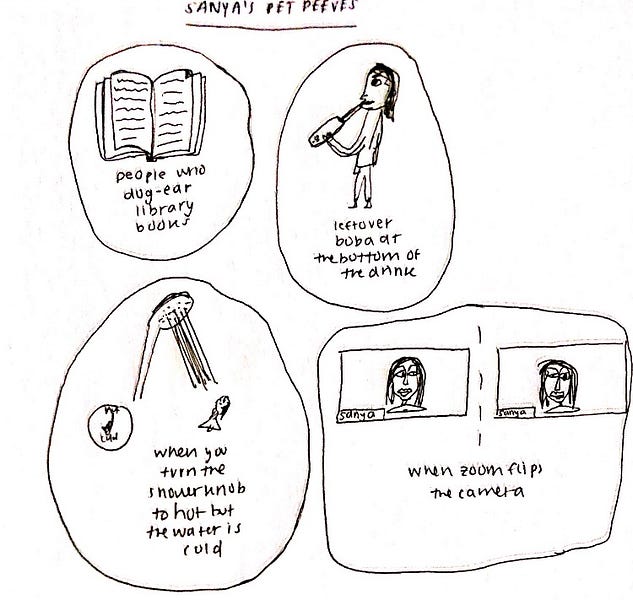 SANYA'S PET PEEVES
people who
dog-ear
library
books
leftover
boba at
the bottom of
the drink
hot
cold
when you
turn the
shower knob
to hot but
the water is
cold
sanya
sanya
when zoom flips
the camera